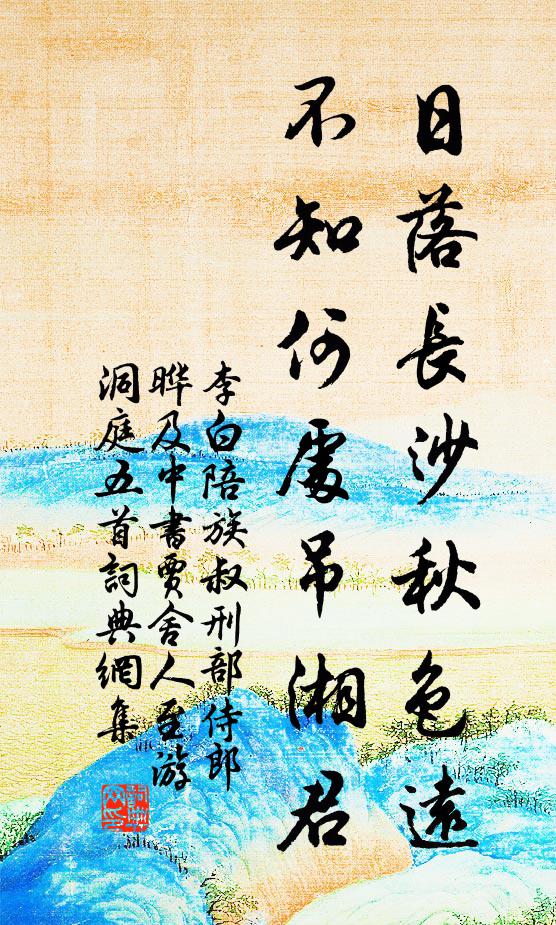 日落長沙秋色遠
不知何處吊湘君
李白陪族叔刑部侍郎
晔及中書賈舍人至游
洞庭五首詞典網集